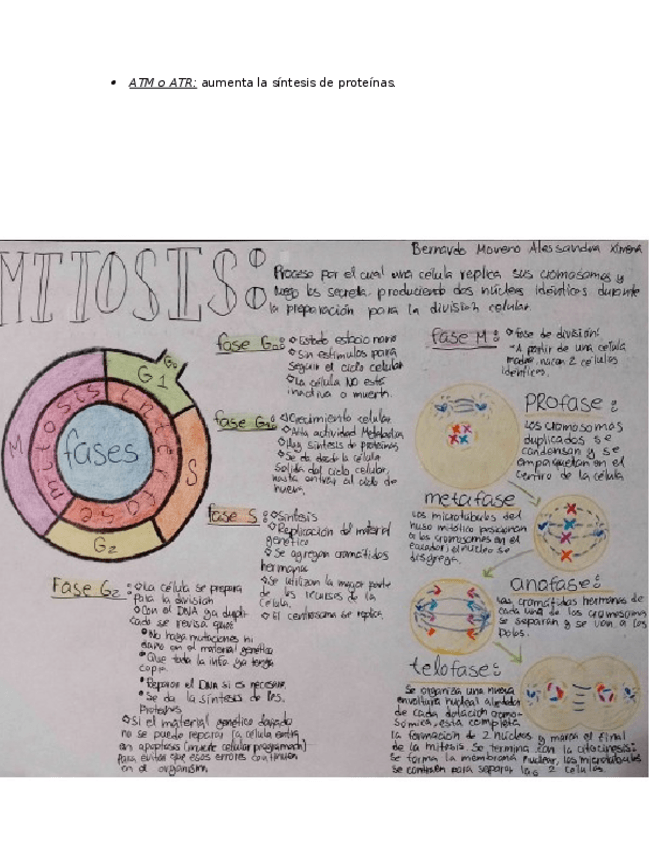 • ATM o ATR: aumenta la síntesis de proteínas.
Bernardo Moreno Alessandra Ximena
MITOSIS:
Proceso por el cual una celula replica sus cromosomas y
luego los segrega, produciendo dos núcleos idénticos durante
la preparación para la división celular.
fase G0: Estado estacionario
Sin estimulos para
seguir el ciclo celular
La célula NO está
inactiva o muerta.
fase G1: Crecimiento celular
Alta actividad Metabolica
Hay síntesis de proteinas
Se da desde la célula
salida del ciclo celular,
hasta entrar al ciclo de
nuevo.
fase S: Sintesis
Replicación del material
genético
Se agregan cromatidas
hermanas
Se utilizan la mayor parte
de los recursos de la
celula.
El centrosoma se replica.
G0
G1
S
G2
M
mitosis
interfase
fases
Fase G2: La célula se prepara
para la división
Con el DNA ya dupli-
cado se revisa que:
No haya mutaciones ni
daño en el material genético
Que toda la info ya tenga
copia
Reparar el DNA si es necesario
Se da la síntesis de las
Proteínas
Si el material genético dañado
no se puede reparar la célula entra
en apoptosis (muerte celular programada)
para evitar que esos errores continuen
en el organismo
fase M: fase de división:
A partir de una celula
madre, nacen 2 células
identicas.
PROfase:
Los cromosomas
duplicados se
condensan y se
empaquetan en el
centro de la celula
metafase
Los microtúbulos del
huso mitótico posicionan
a los cromosomas en el
ecuador, el núcleo se
disgrega.
anafase:
Las cromátidas hermanas de
cada uno de los cromosomas
se separan y se van a los
polos.
telofase:
Se organiza una nueva
envoltura nuclear alrededor
de cada dotación cromo-
sómica, esta completa
la formación de 2 núcleos y marca el final
de la mitosis. Se termina con la citocinesis:
Se forma la membrana nuclear, los microtúbulos
se contraen para separar las 2 celulas.